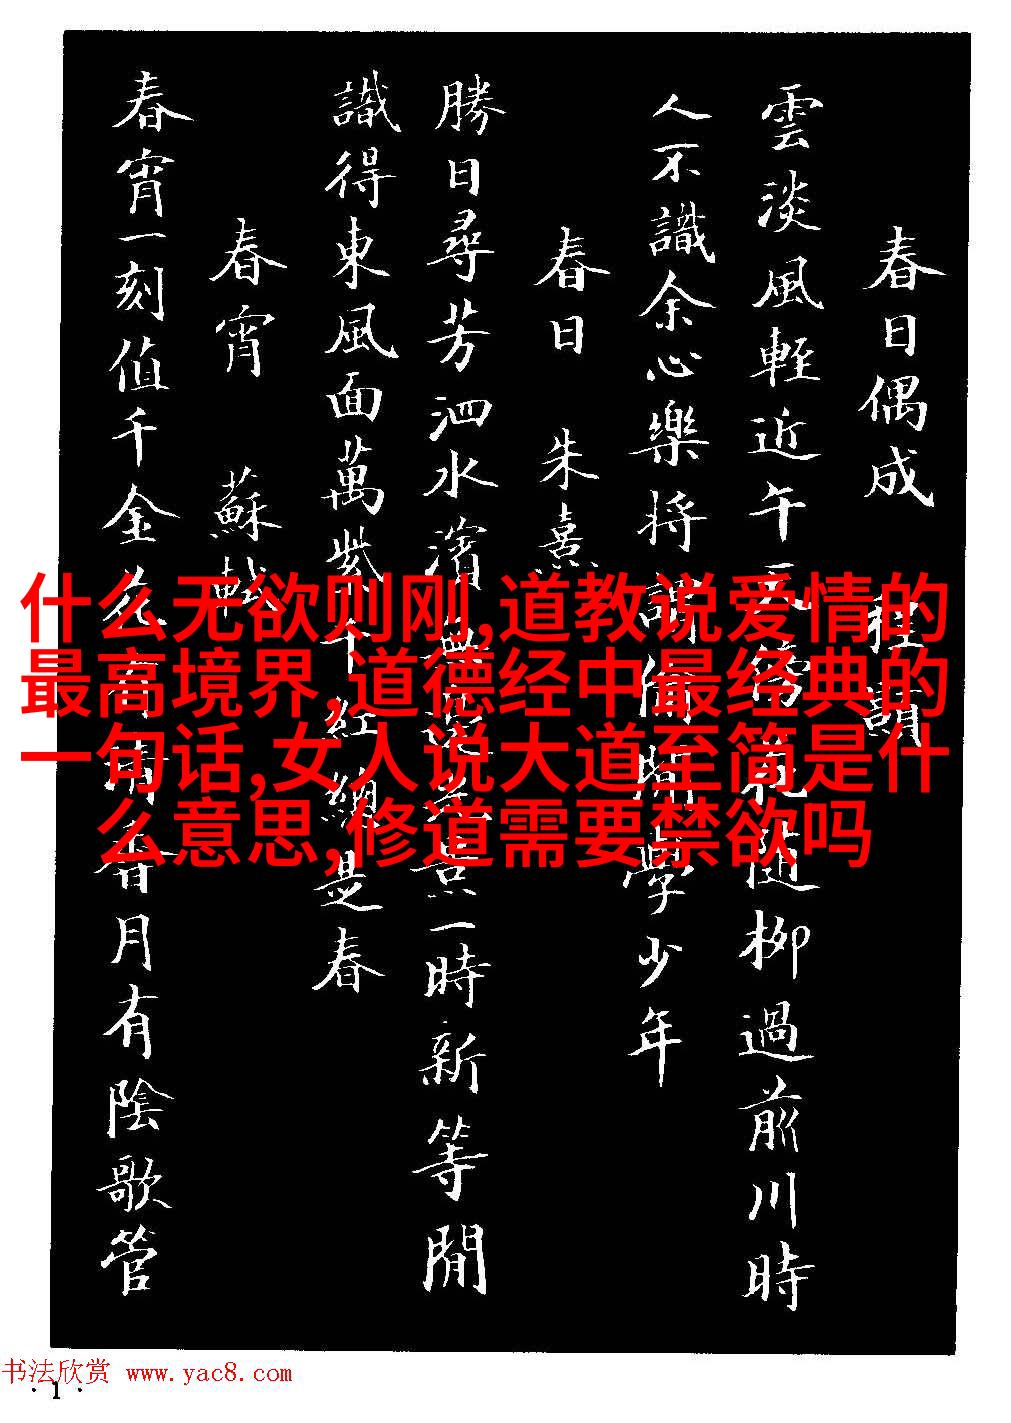 春日偶成 程
雲淡風輕近午天 隨柳過前川時
人不識余心樂將 偷閒學少年
春日 朱熹
勝日尋芳泗水濱 一時新等閒
識得東風面萬紫千紅總是春
春宵 蘇軾
春宵一刻值千金花有清香月有陰歌管
什么无欲则刚,道教说爱情的
最高境界,道德经中最经典的
一句话,女人说大道至简是什
么意思,修道需要禁欲吗
书法欣赏 www.yac8.com
·1·